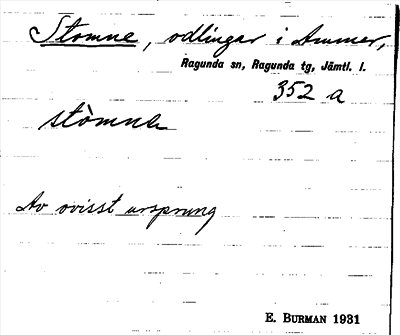 Stomne, odlingar i Ammer,
Ragunda sn, Ragunda tg, Jämtl. l.
352 a
stòmne
Av ovisst ursprung
E. BURMAN 1931